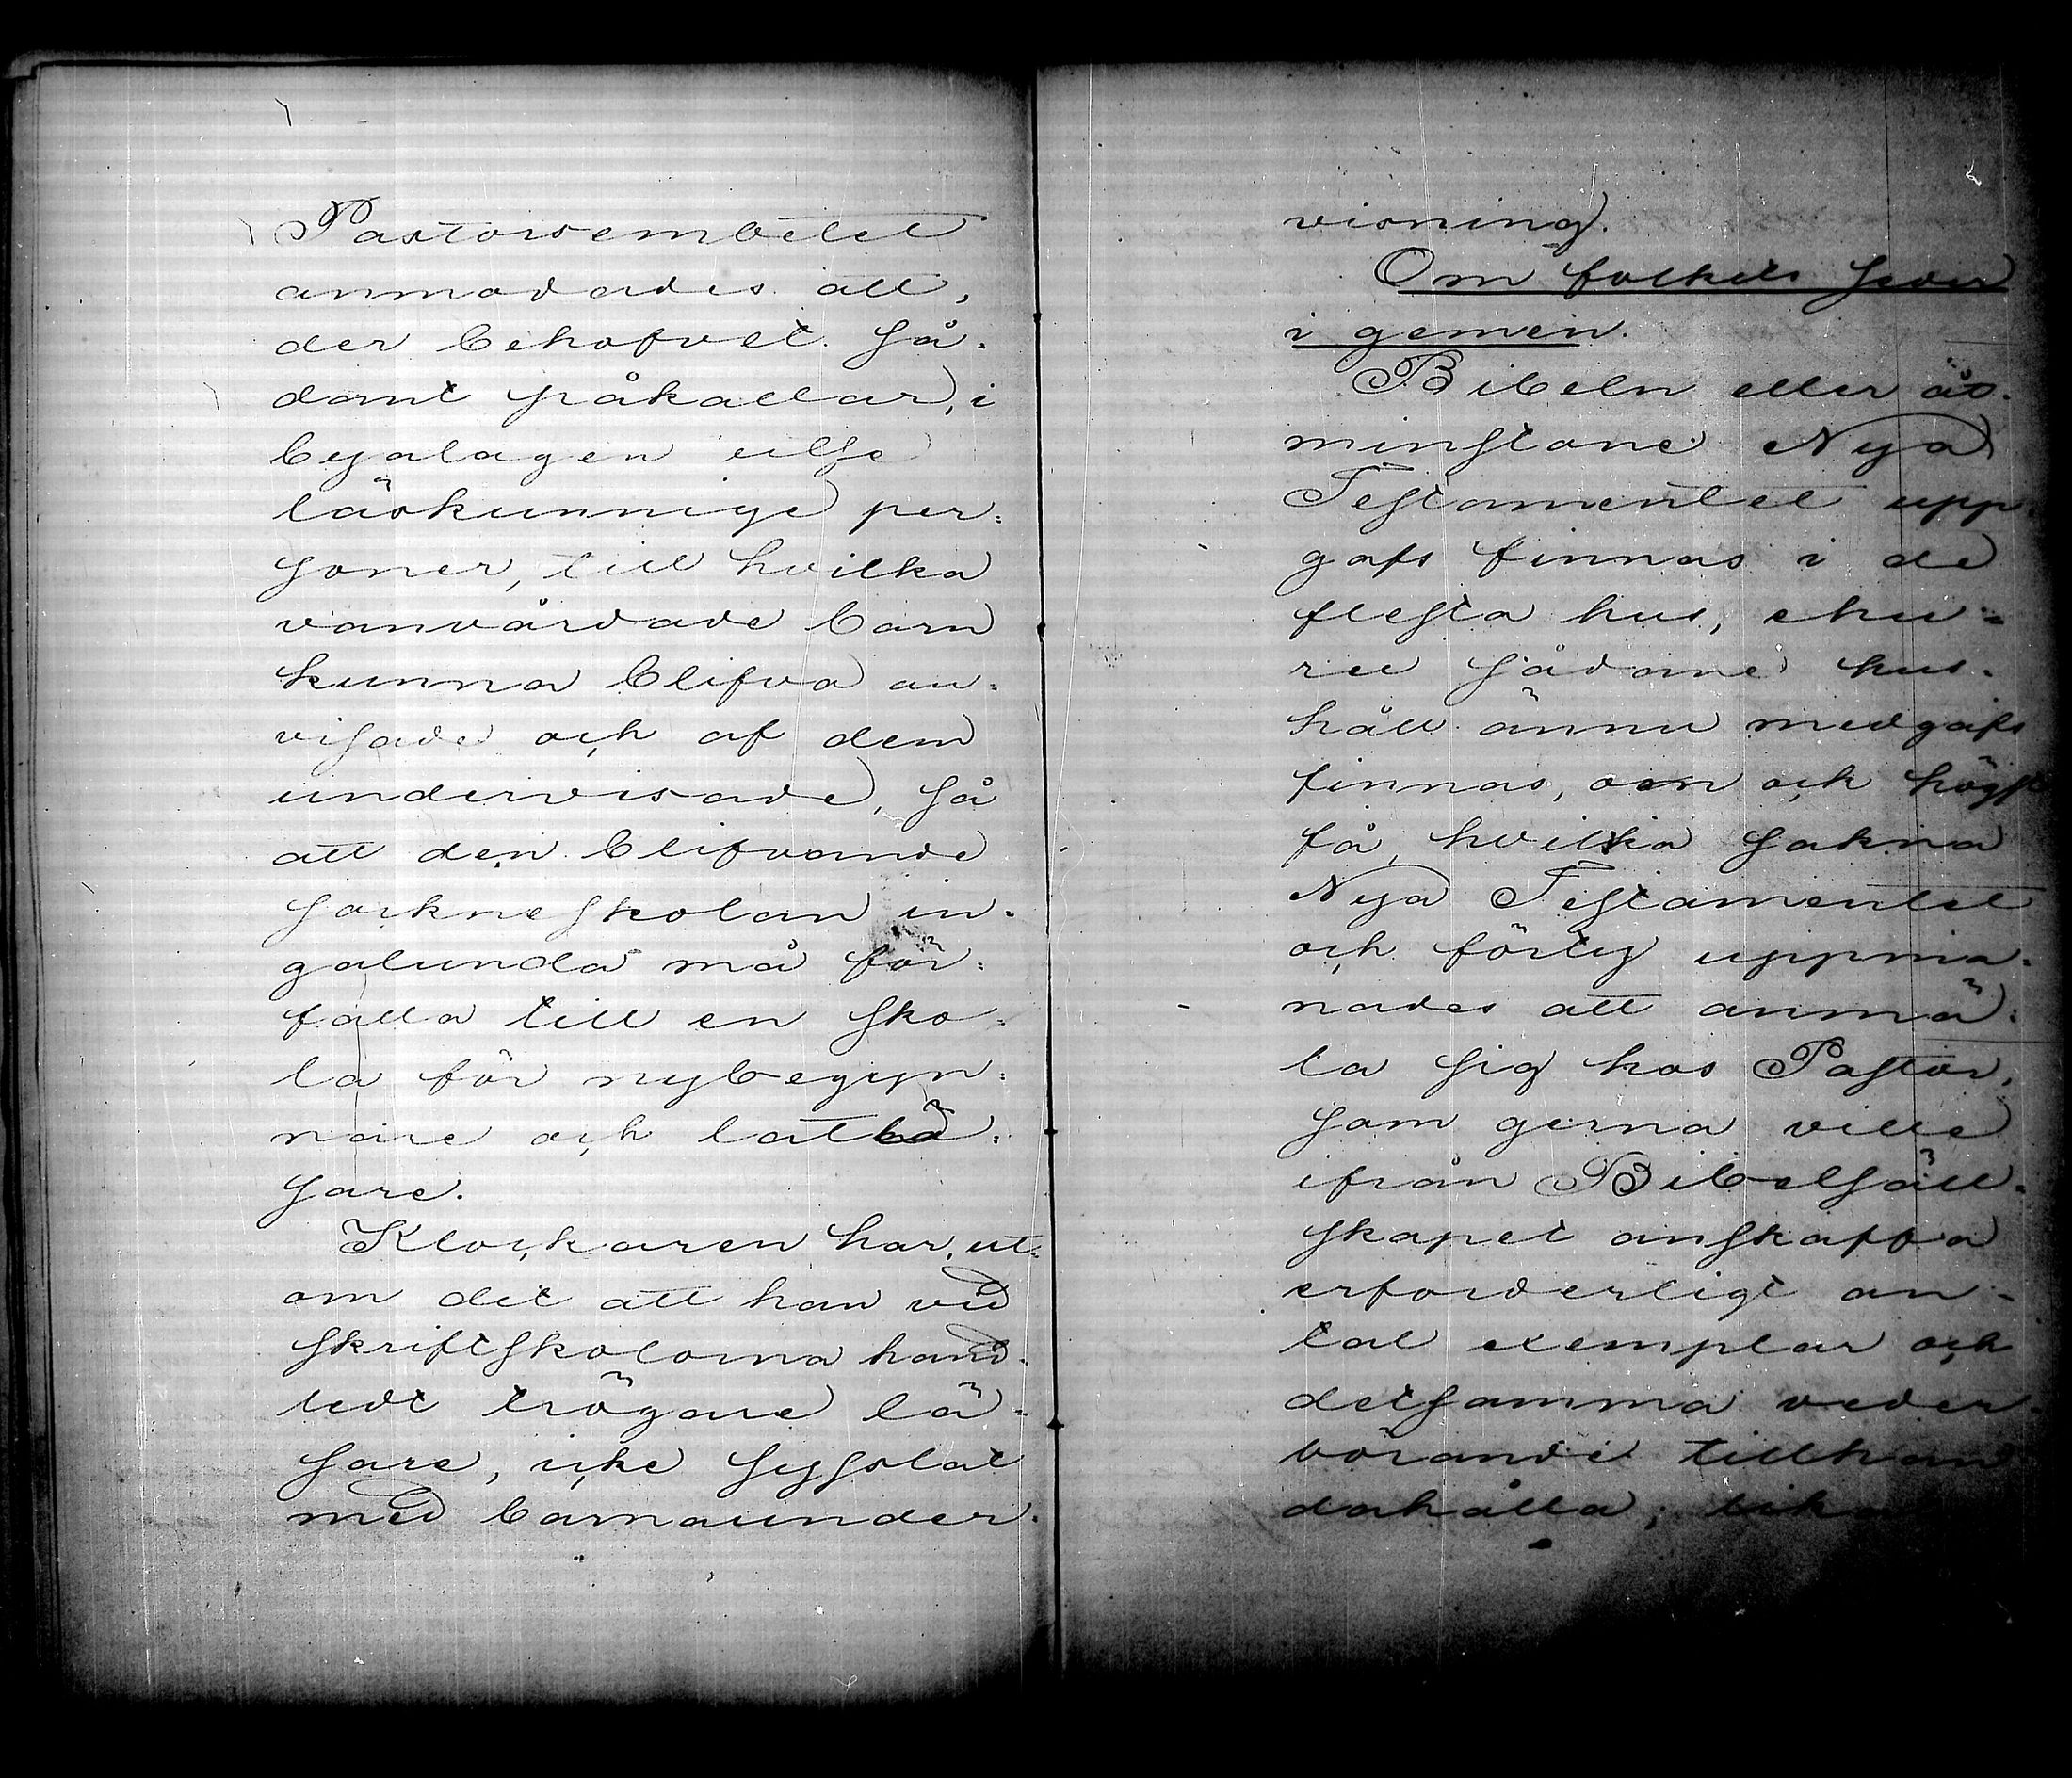 Pastorsembetet
anmodades att,
der behofvet så-
dant påkallar, i
byalagen utse
läskunnige per-
soner, till hvilka
vanvårdade barn
kunna blifva an-
visade och af dem
undervisade, så
att den blifvande
sockneskolan in-
galunda må för-
falla till en sko-
la för nybegyn-
nare och latlä-
sare.
Klockaren har, ut-
om det att han vid
skriftskolorna hand-
ledt trögare lä-
sare, icke sysslat
med barnaunder-
visning.
Om folkets seder
i gemen.
Bibeln eller åt-
minstone Nya
Testamentet upp-
gafs finnas i de
flesta hus, ehu-
ru sådane hus-
håll ännu medgafs
finnas, om och högst
få, hvilka sakna
Nya Testamentet
och förty uppma-
nades att anmä-
la sig hos Pastor,
som gerna ville
ifrån Bibelsäll-
skapet anskaffa
erforderligt an-
tal exemplar och
detsamma veder-
börande tillhan
dahålla; lik